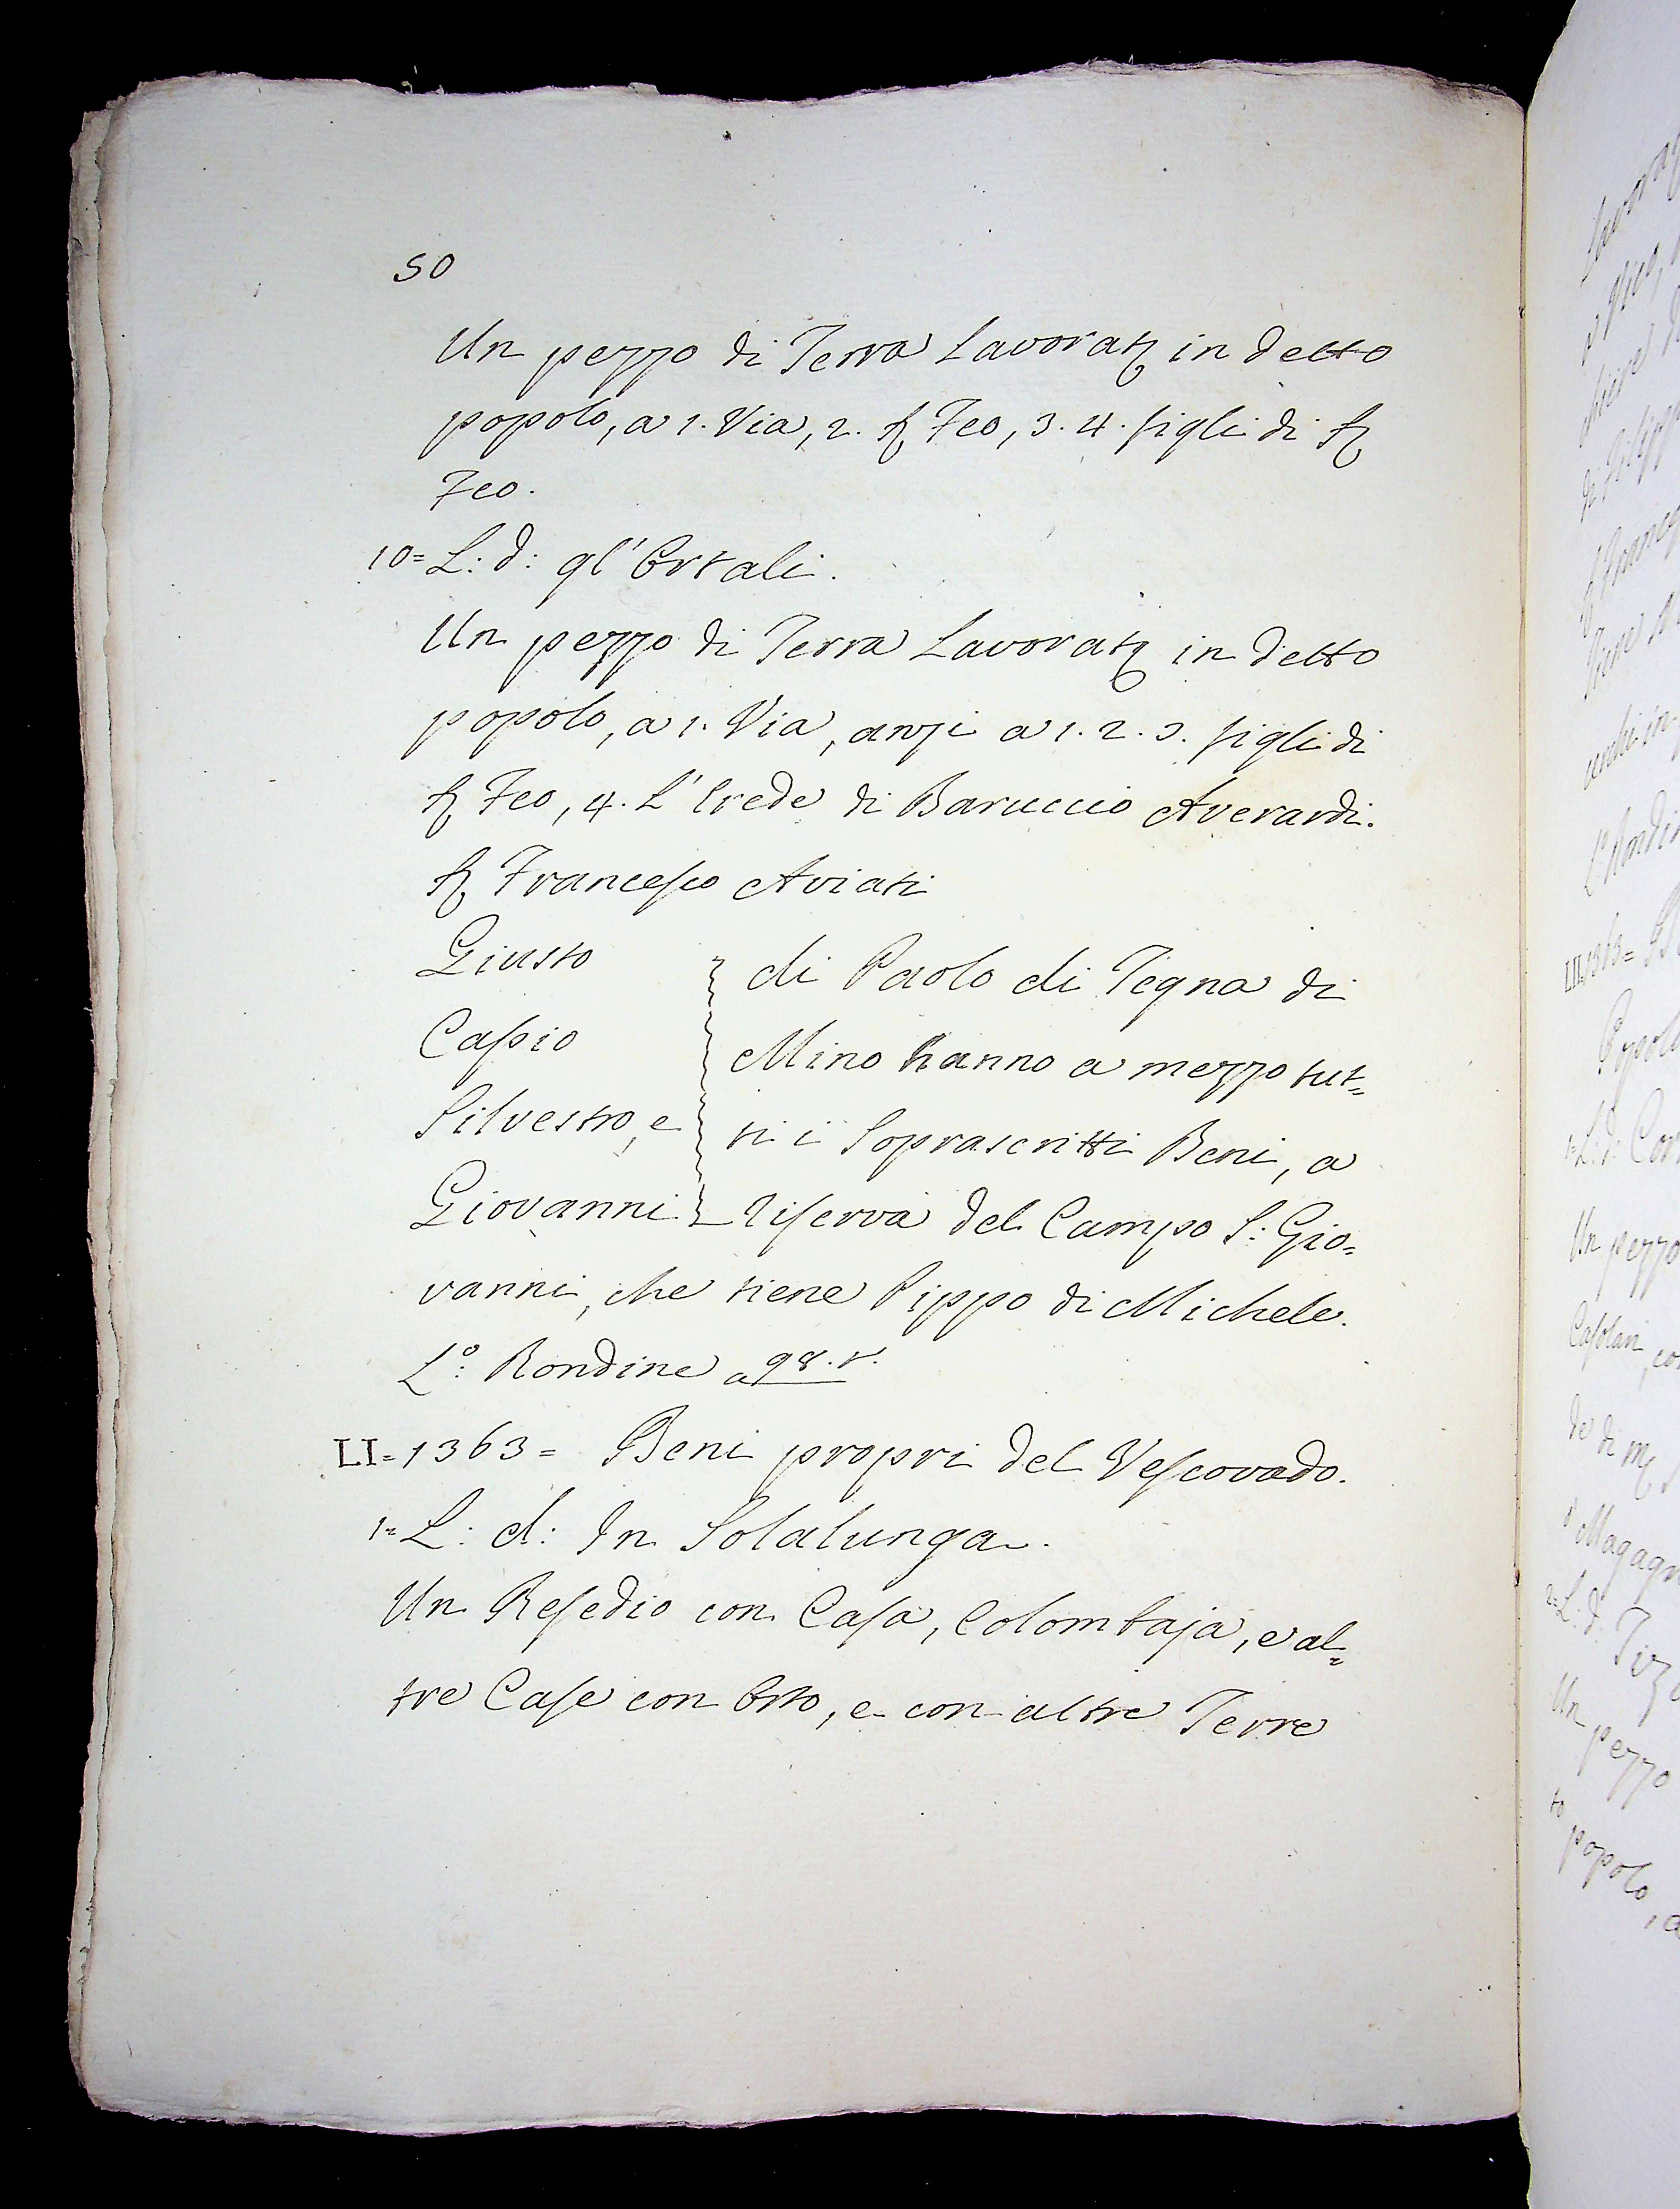 50
Un pezzo di Terra Lavorat in detto
popolo, a 1. Via, 2. Feo, 3. 4. figli di
Feo.
10= L: d: gl' Ortali.
Un pezzo di Terra Lavorat in detto
popolo, a 1. Via, anzi a 1. 2. 3. figli di
Feo, 4. L' Erede di Baruccio Averardi.
Francesco Aviati
Giusto
Casio
Silvestro, e
Giovanni
di Paolo di Tegna di
Mino hanno a mezzo tut=
ti i Soprascritti Beni, a
riserva del Campo S: Gio=
vanni, che tiene Pippo di Michele.
L:º Rondine a 98. t.
LI= 1363= Beni propri del Vescovado.
1= L: d: In Solalunga.
Un Resedio con Casa, Colombaja, e al=
tre Case con Orto, e con altre Terre